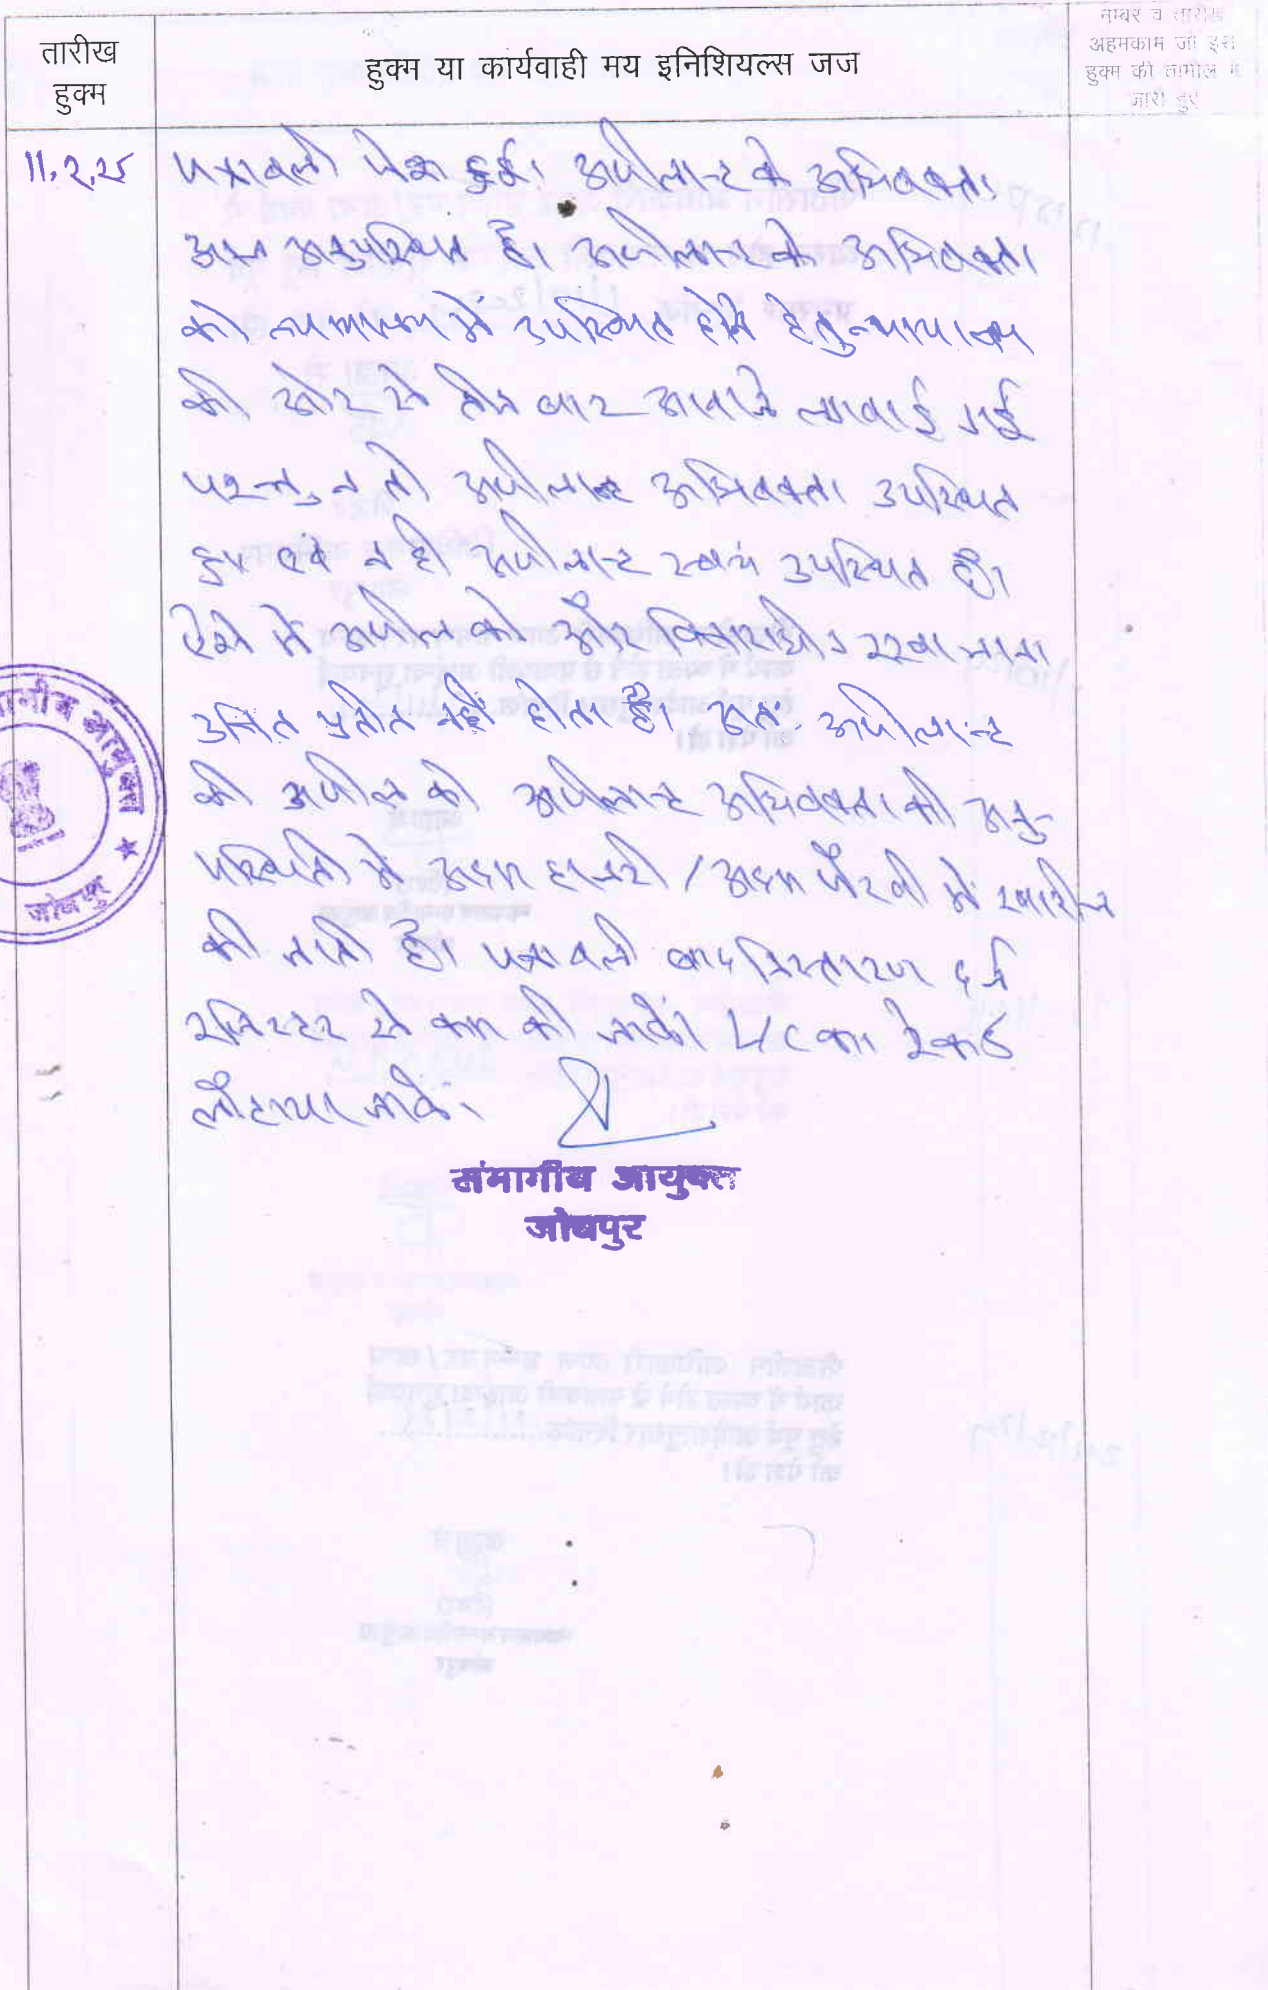 तारीख
हुक्म
हुक्म या कार्यवाही मय इनिशियल्स जज
नम्बर व तारीख
अहमकाम जो इस
हुक्म की तामील में
जारी हुए
11.2.25
पत्रावली पेश हुई। अपीलान्ट के अभिवक्ता
अनुपस्थित है। अपीलान्ट के अभिवक्ता
को न्यायालय में उपस्थित होने हेतु न्यायालय
की ओर से तीन बार आवाजे लगवाई गई
परन्तु न तो अपीलान्ट अभिवक्ता उपस्थित
हुए एवं न ही अपीलान्ट स्वयं उपस्थित है।
ऐसे में अपील को और विचाराधीन रखा जाना
उचित प्रतीत नहीं होता है। अतः अपीलान्ट
की अपील को अपीलान्ट अभिवक्ता की अनु-
पस्थिती में अदम हाजरी / अदम पैरवी में खारीज
की जाती है। पत्रावली बाद निस्तारण दर्ज
रजिस्टर से कम की जाके। L/C का रेकर्ड
लौटाया जाके।
संभागीय आयुक्त
जोधपुर
आयुक्त
जोधपुर